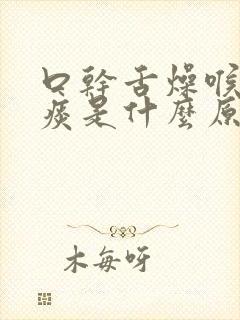 口幹舌燥喉
痰是什麼原
木每呀